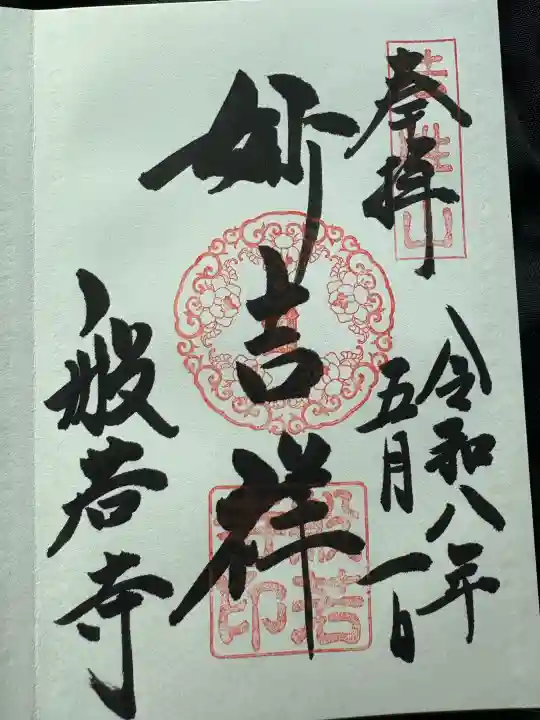 奉拝
令和八年
五月一日
妙吉祥
般若寺
般若寺印